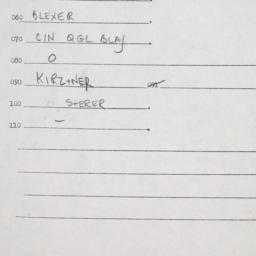 060 BLEXER
070 C/N QGL BLAJ
080 O
090 KIRZTNER
100 STERER
110